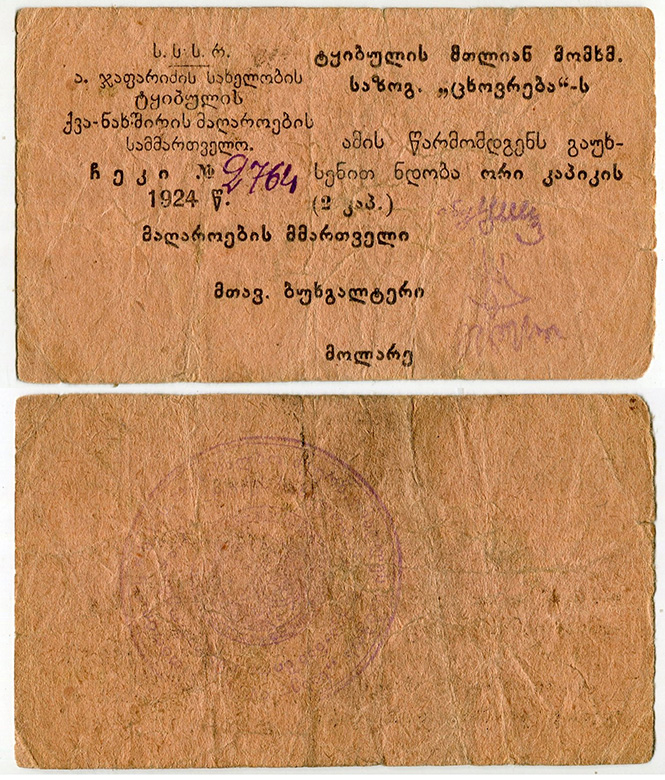 ს. ს. ს. რ.
ა. ჯაფარიძის სახელობის
ტყიბულის
ქვა-ნახშირის მაღაროების
სამმართველო.
ჩეკი № 2764
1924 წ.
ტყიბულის მთლიან მომხმ.
საზოგ. „ცხოვრება“-ს
ამის წარმომდგენს გაუხ-
სენით ნდობა ორი კაპიკის
(2 კაპ.)
მაღაროების მმართველი
მთავ. ბუხგალტერი
მოლარე